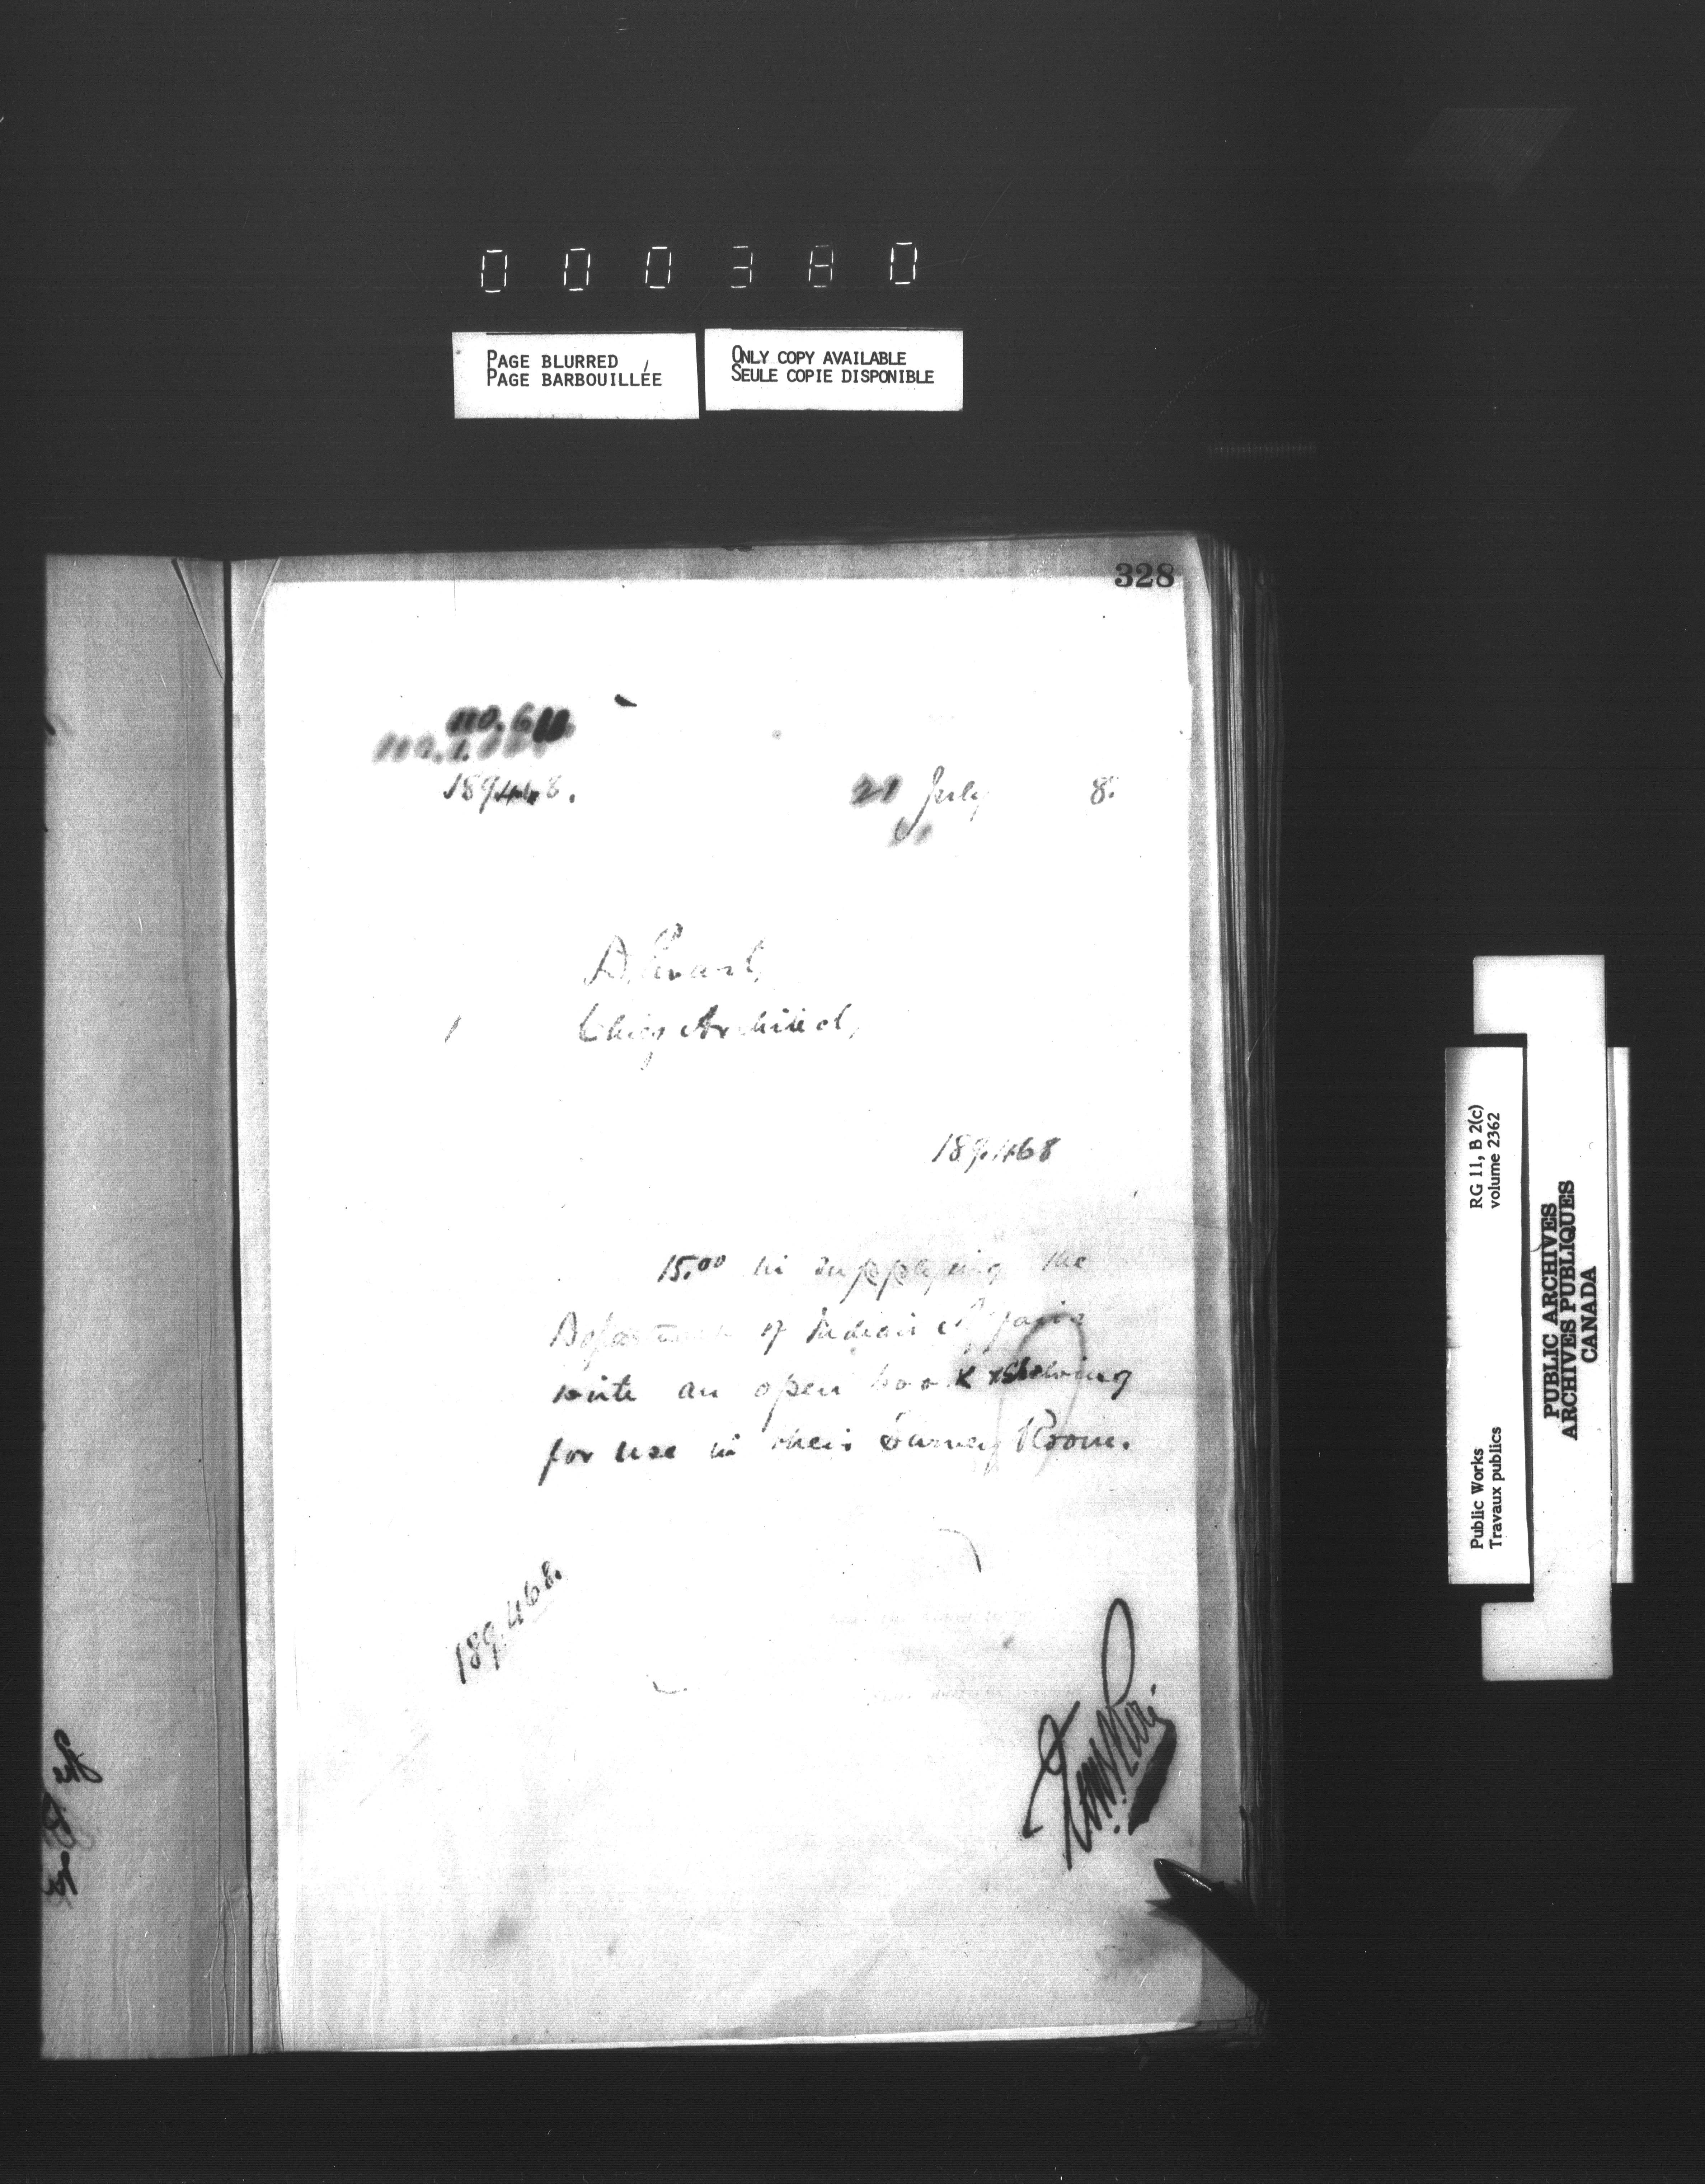 000380
PAGE BLURRED
PAGE BARBOUILLÉE
ONLY COPY AVAILABLE
SEULE COPIE DISPONIBLE
328
no. 611
189468.
21 July 8.
D. Ewart,
Chief Architect,
189468
15.00 in supplying the
Department of Indian Affairs
with an open book shelving
for use in their Survey Room.
189,468.
RG 11, B 2(c)
volume 2362
Public Works
Travaux publics
PUBLIC ARCHIVES
ARCHIVES PUBLIQUES
CANADA
The